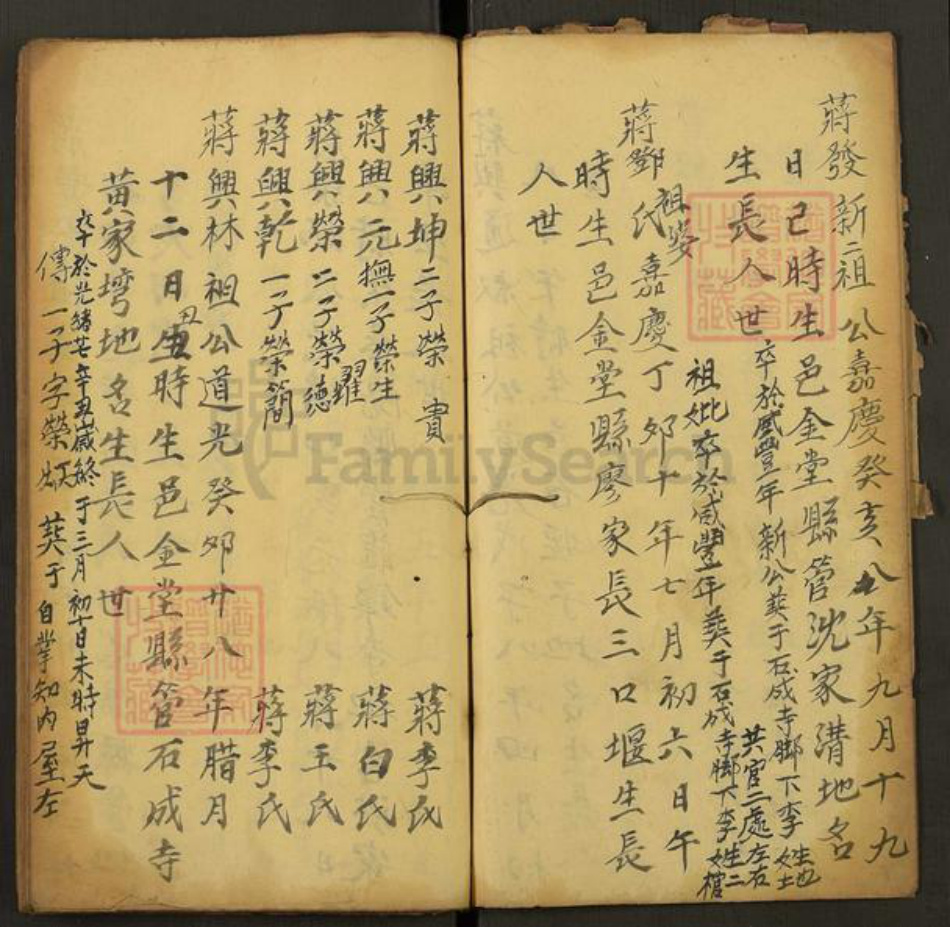 蔣發新二祖公嘉慶癸亥八年九月十九
日巳時生邑金堂縣管沈家溝地名
生長人世
卒於咸豐一年新公葬于石成寺脚下李姓地
祖妣卒於咸豐年葬于石成寺脚下李姓二棺
共官二處左右
蔣鄧氏嘉慶丁卯十年七月初六日午
祖婆
時生邑金堂縣廖家長三口堰生長
人世
蔣興坤二子榮貴 蔣李氏
蔣興元撫一子榮生 蔣白氏
蔣興榮二子榮德 蔣王氏
耀
蔣興乾一子榮簡 蔣李氏
蔣興林祖公道光癸卯廿八年腊月
十二日丑時生邑金堂縣管石成寺
黃家塆地名生長人世
卒於光緒辛丑歲終于三月初十日未時昇天
傳一子字榮 葬于自掌知內屋左
FamilySearch